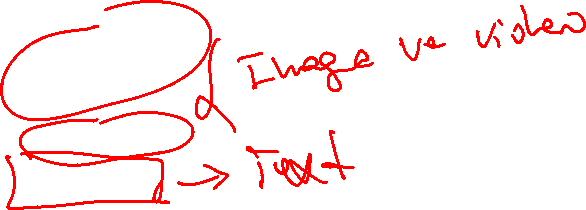 Image ve video
Text